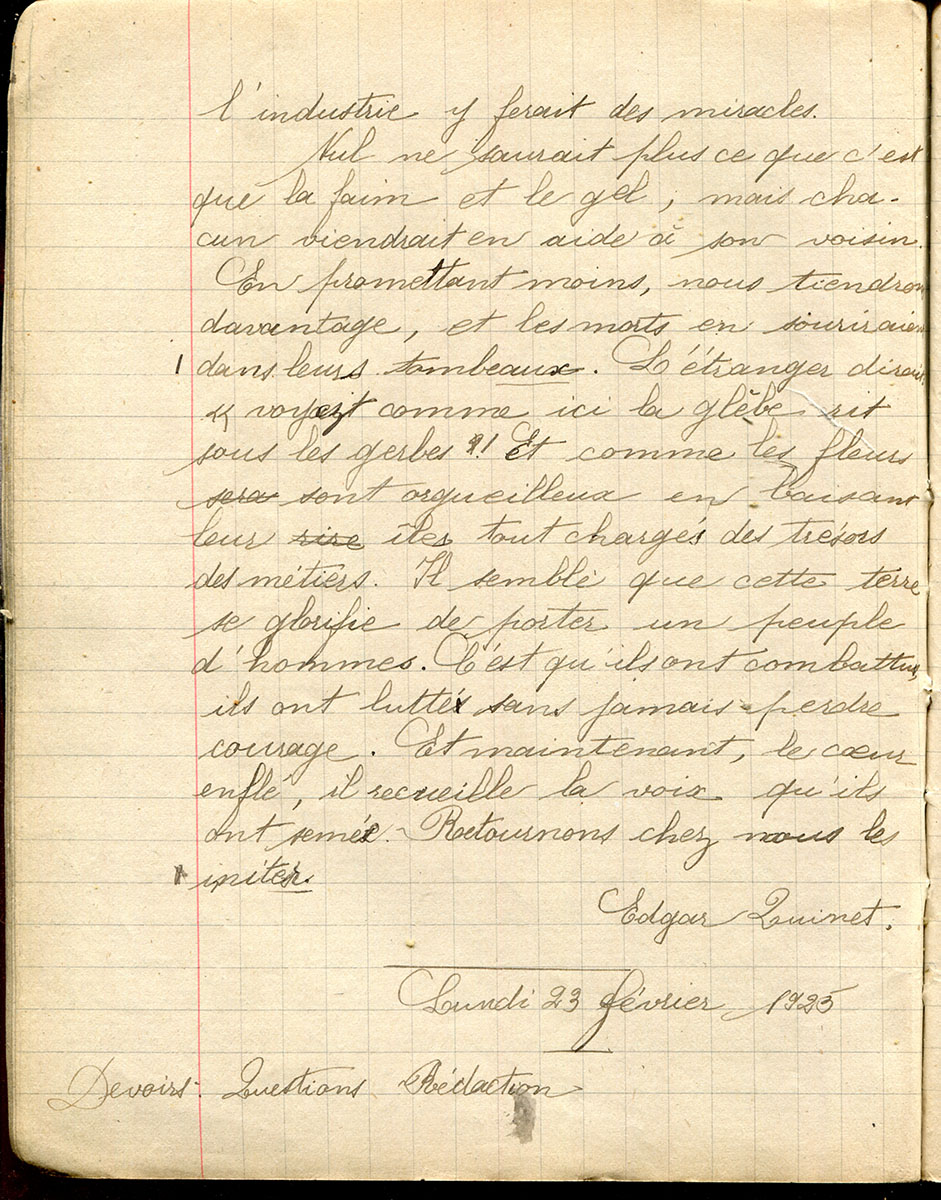 l'industrie y ferait des miracles.
Nul ne saurait plus ce que c'est
que la faim et le gel, mais cha-
cun viendrait en aide à son voisin.
En promettant moins, nous tiendron
davantage, et les morts en souriraien
1 dans leurs tombeaux. L'étranger dirait
« voyez comme ici la glèbe rit
sous les gerbes "! Et comme les fleurs
sera sont orgueilleux en baisant
leur rire îles tout chargés des trésors
des métiers. Il semble que cette terre
se glorifie de porter un peuple
d'hommes. C'est qu'ils ont combattus,
ils ont luttés sans jamais perdre
courage. Et maintenant, le cœur
enflé, il recueille la voix qu'ils
ont semé. Retournons chez nous les
1 initer.
Edgar Quinet.
Lundi 23 février 1925
Devoirs. Questions Rédaction